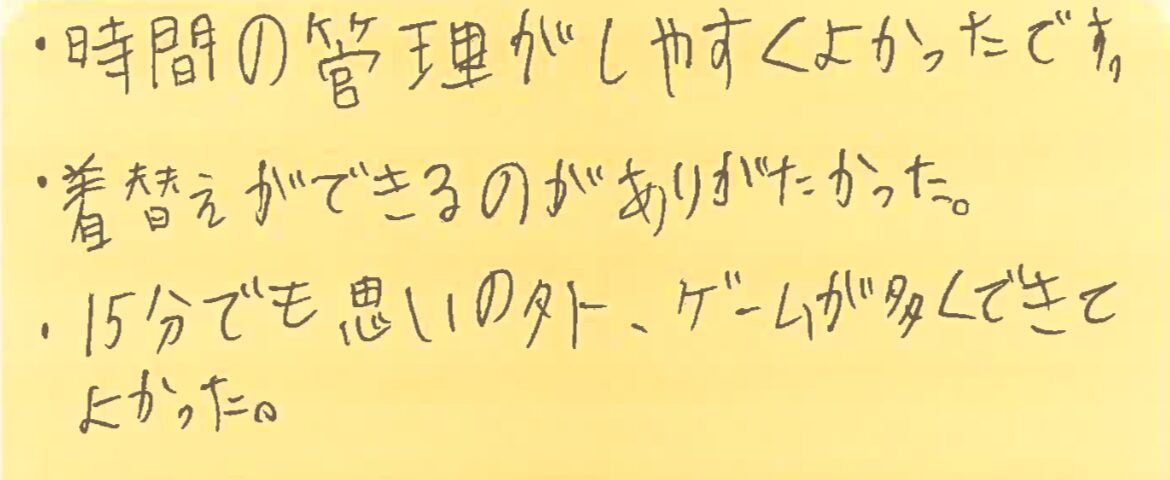 ・時間の管理がしやすくよかったです。
・着替えができるのがありがたかった。
・15分でも思いの外、ゲームが多くできて
よかった。